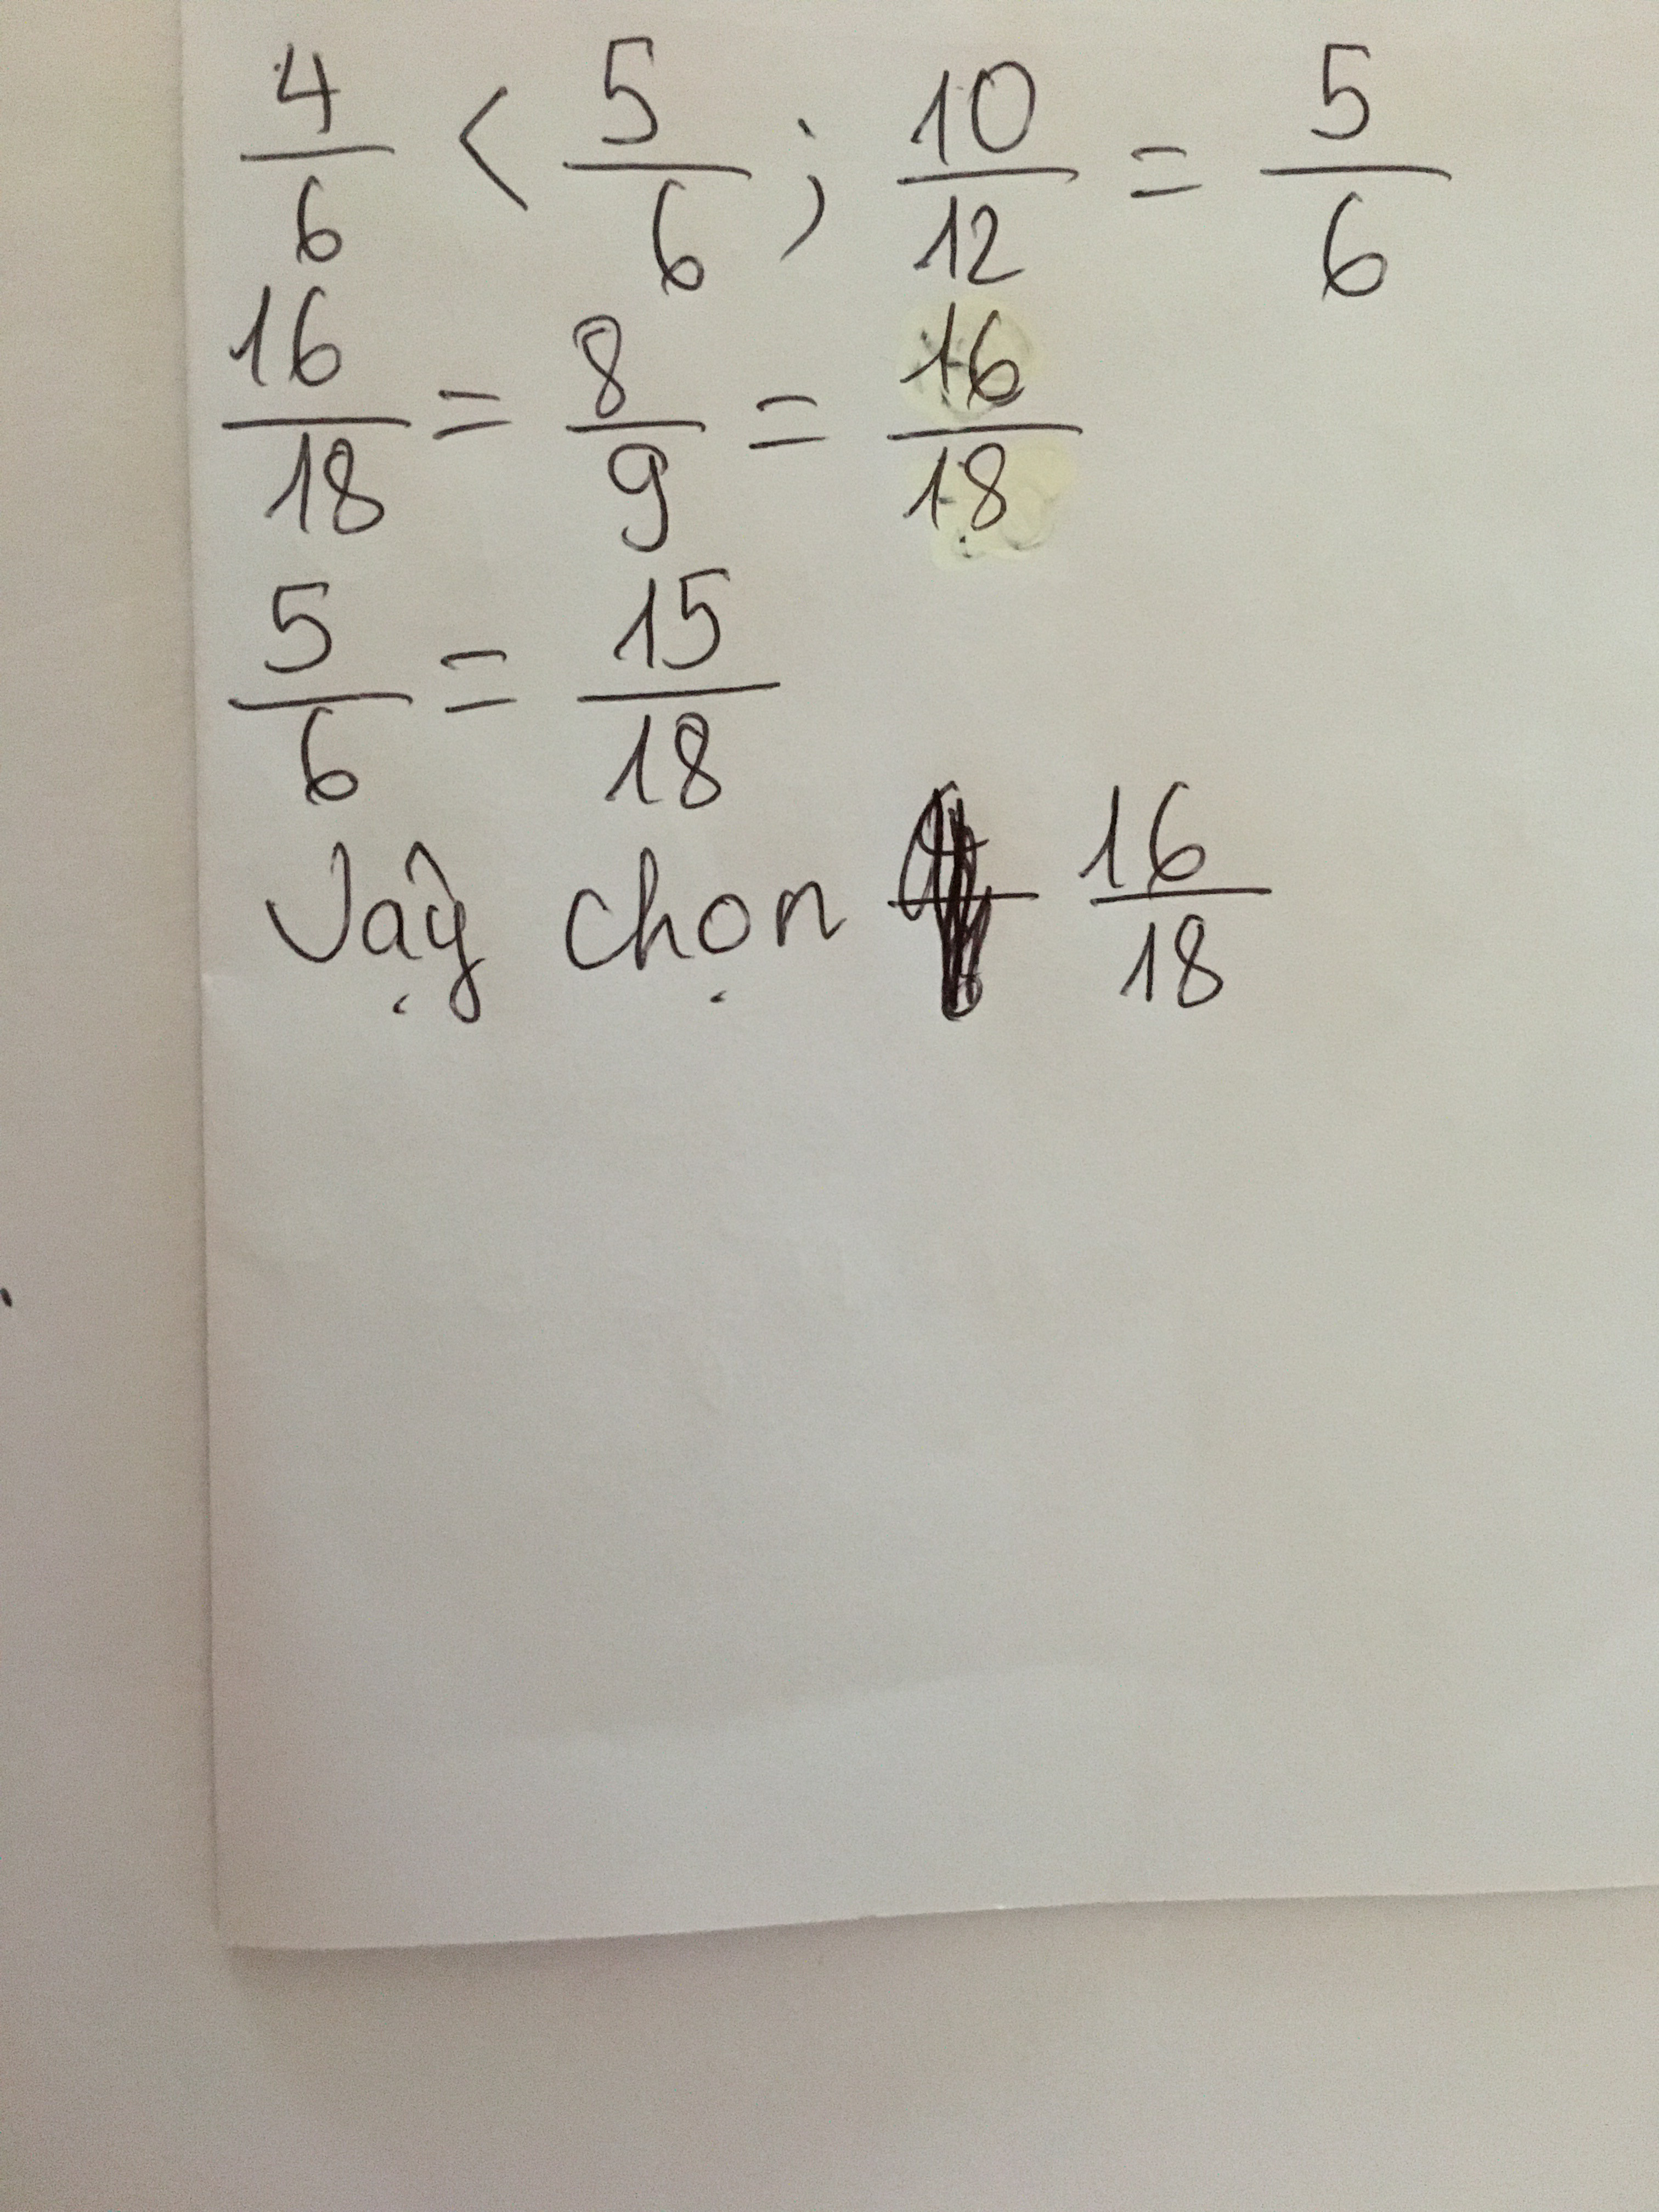 4/6 < 5/6 ; 10/12 = 5/6
16/18 = 8/9 = 16/18
5/6 = 15/18
Vậy chọn 16/18